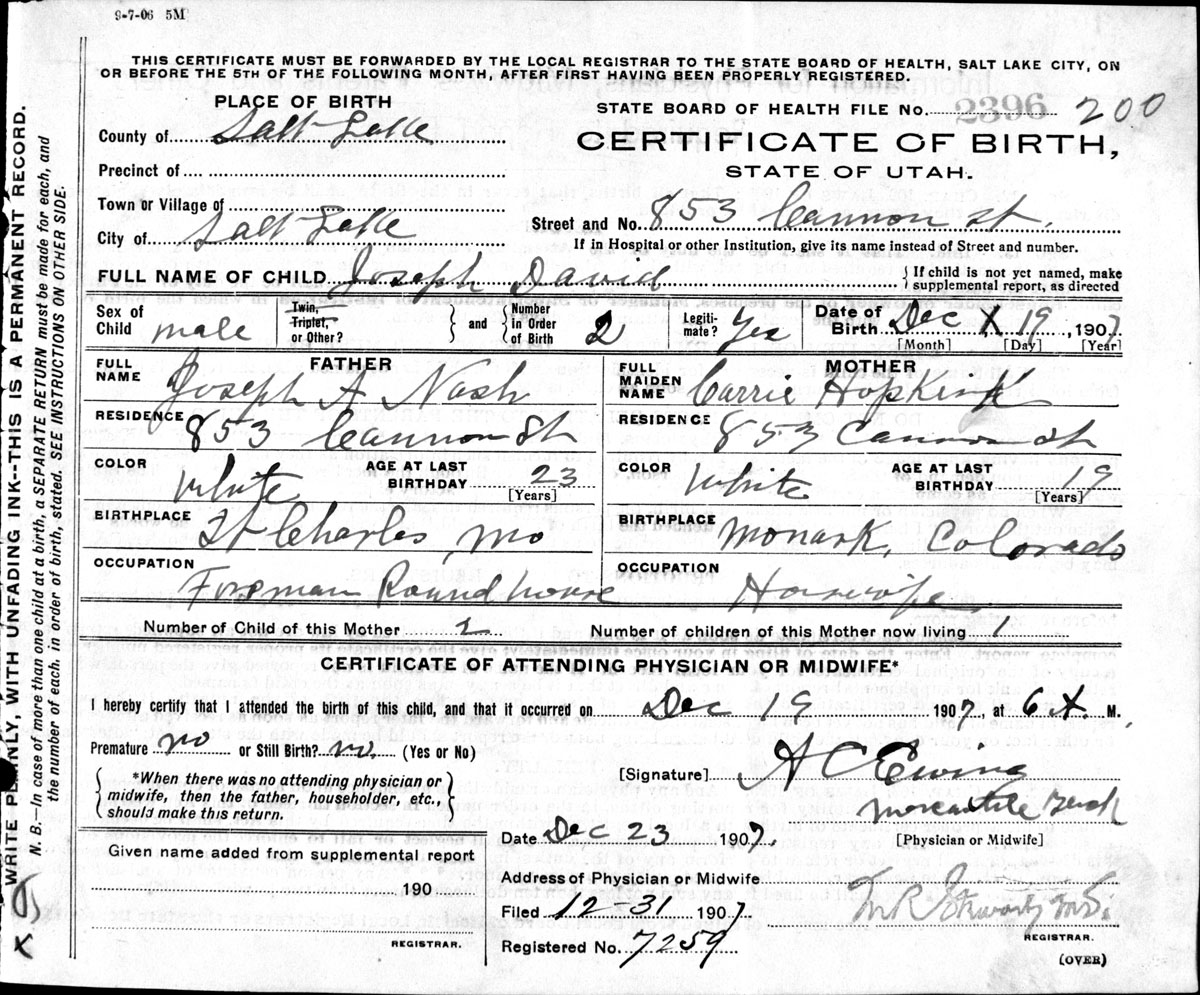 9-7-06 5M
THIS CERTIFICATE MUST BE FORWARDED BY THE LOCAL REGISTRAR TO THE STATE BOARD OF HEALTH, SALT LAKE CITY, ON
OR BEFORE THE 5TH OF THE FOLLOWING MONTH, AFTER FIRST HAVING BEEN PROPERLY REGISTERED.
PLACE OF BIRTH
STATE BOARD OF HEALTH FILE No. 2396 200
County of Salt Lake
CERTIFICATE OF BIRTH,
STATE OF UTAH.
Precinct of
Town or Village of
Street and No. 853 Cannon St.
City of Salt Lake
If in Hospital or other Institution, give its name instead of Street and number.
FULL NAME OF CHILD Joseph David
If child is not yet named, make
supplemental report, as directed
Sex of Child male
Twin, Triplet, or Other?
and
Number in Order of Birth 2
Legitimate? Yes
Date of Birth Dec 19, 1907
[Month] [Day] [Year]
FATHER
FULL NAME Joseph A Nash
RESIDENCE 853 Cannon St
COLOR White
AGE AT LAST BIRTHDAY 23
[Years]
BIRTHPLACE St Charles, Mo
OCCUPATION Forman Round house
MOTHER
FULL MAIDEN NAME Carrie Hopkins
RESIDENCE 853 Cannon St
COLOR White
AGE AT LAST BIRTHDAY 19
[Years]
BIRTHPLACE Monark, Colorado
OCCUPATION Housewife
Number of Child of this Mother 2
Number of children of this Mother now living 1
CERTIFICATE OF ATTENDING PHYSICIAN OR MIDWIFE*
I hereby certify that I attended the birth of this child, and that it occurred on Dec 19 1907, at 6 A. M.
Premature no or Still Birth? no. (Yes or No)
*When there was no attending physician or
midwife, then the father, householder, etc.,
should make this return.
[Signature] A C Ewing
[Physician or Midwife]
Date Dec 23 1907.
Given name added from supplemental report
190
REGISTRAR.
Address of Physician or Midwife
Filed 12-31 1907
Registered No. 7259
REGISTRAR.
(OVER)
WRITE PLAINLY, WITH UNFADING INK--THIS IS A PERMANENT RECORD.
N. B.—In case of more than one child at a birth, a SEPARATE RETURN must be made for each, and
the number of each, in order of birth, stated. SEE INSTRUCTIONS ON OTHER SIDE.